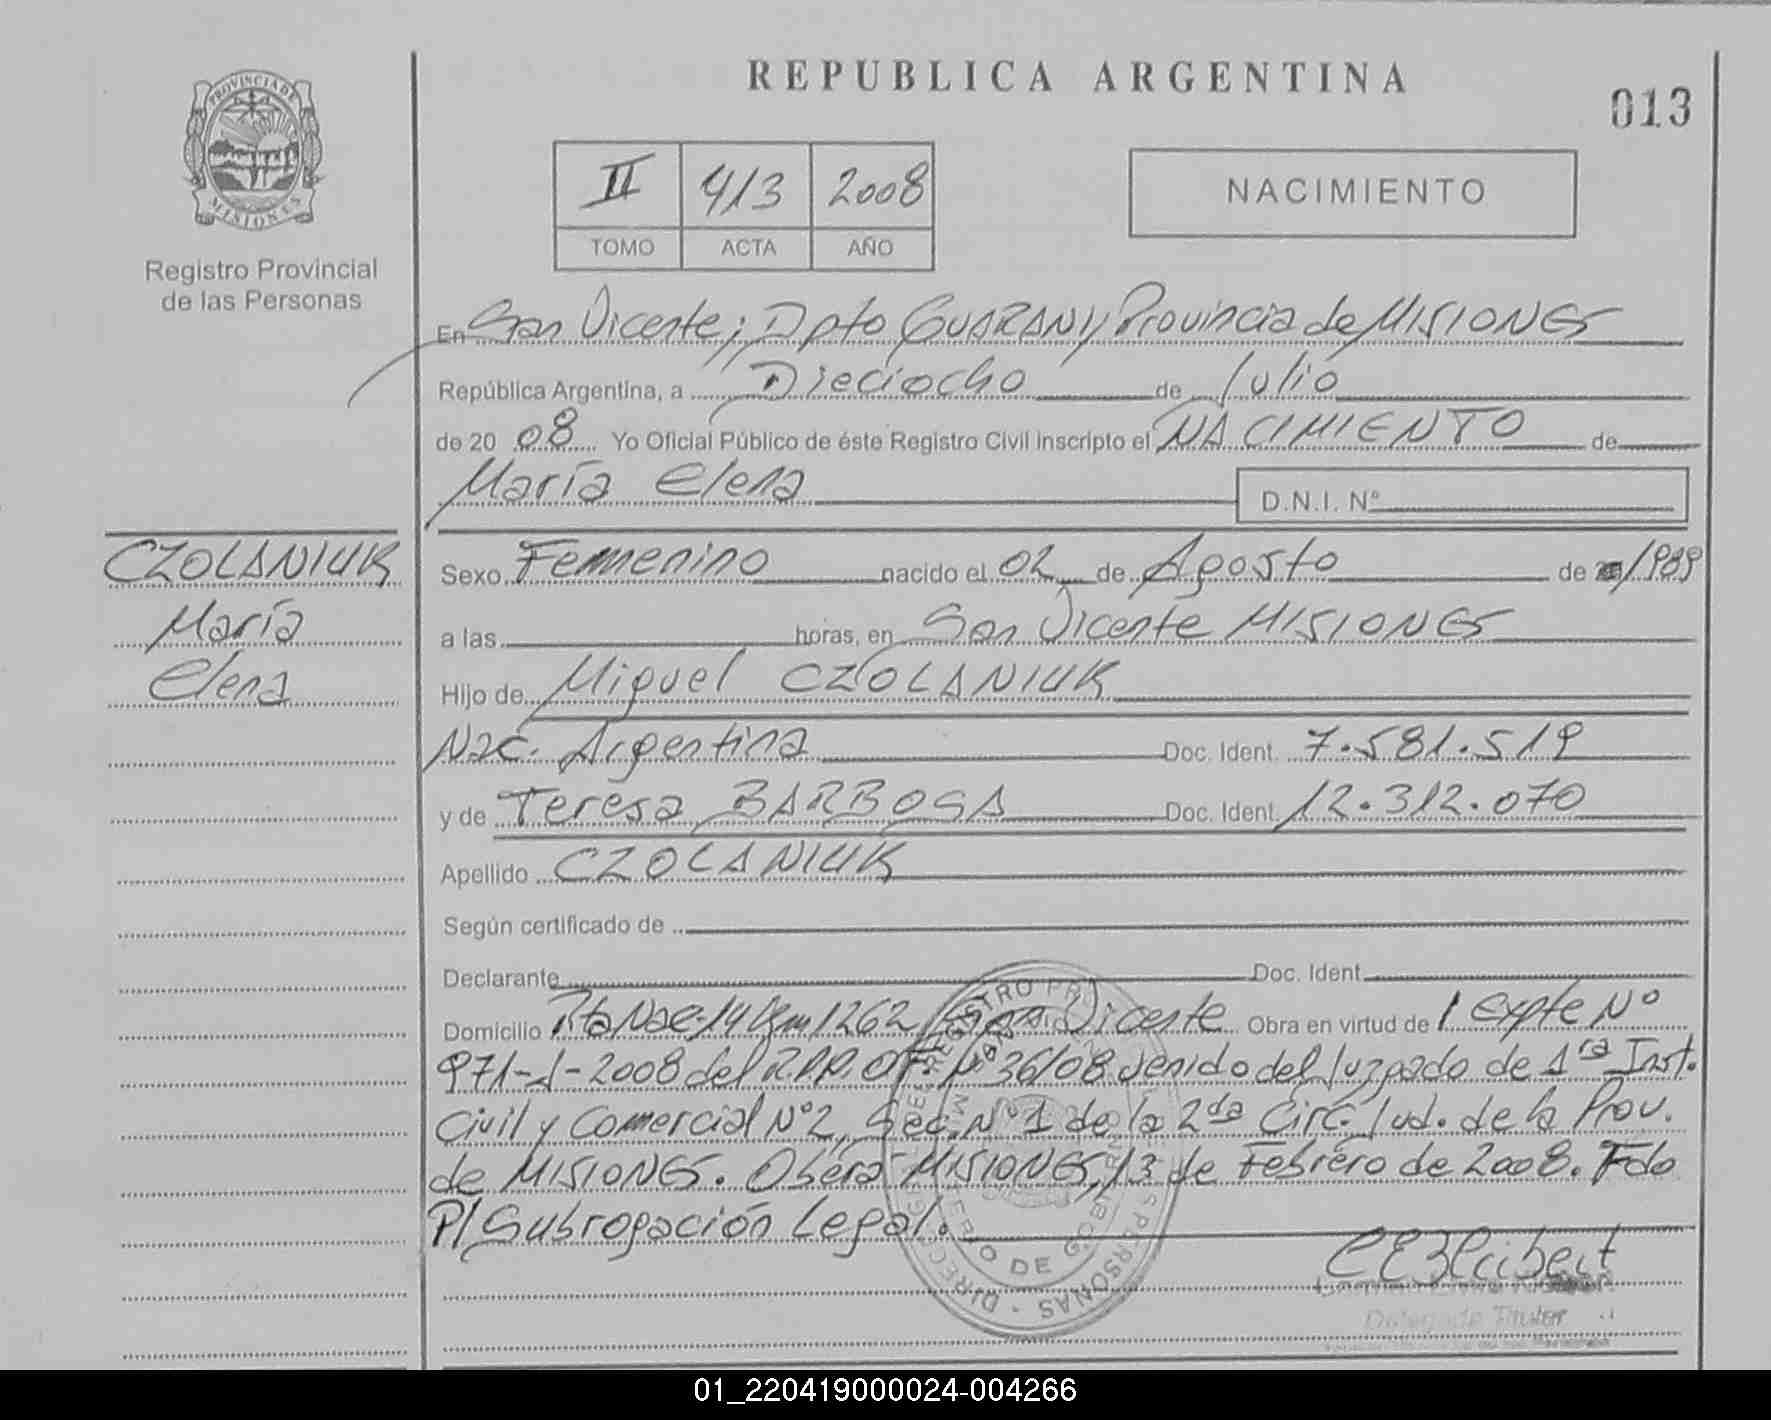 REPUBLICA ARGENTINA
013
PROVINCIA DE
MISIONES
Registro Provincial
de las Personas
II 413 2008
TOMO ACTA AÑO
NACIMIENTO
En San Vicente; Dpto GUARANI, Provincia de MISIONES
República Argentina, a Dieciocho de Julio
de 20 08 Yo Oficial Público de éste Registro Civil inscripto el NACIMIENTO de
María Elena D.N.I. Nº
CZOLANIUK
María
Elena
Sexo Femenino nacido el 02 de Agosto de 1989
a las horas, en San Vicente MISIONES
Hijo de Miguel CZOLANIUK
Nac. Argentina Doc. Ident. 7.581.519
y de Teresa BARBOSA Doc. Ident. 12.312.070
Apellido CZOLANIUK
Según certificado de
Declarante Doc. Ident.
Domicilio Rta Nac. 14 Km 1262 San Vicente Obra en virtud de Expte Nº
971-J-2008 del R.P.P. OF. Nº 36/08 venido del Juzgado de 1ra Inst.
Civil y Comercial Nº2, Sec. Nº 1 de la 2da Circ. Jud. de la Prov.
de MISIONES. Oberá MISIONES, 13 de Febrero de 2008. Fdo
P/ Subrogación Legal.
Delegado Titular
01_220419000024-004266